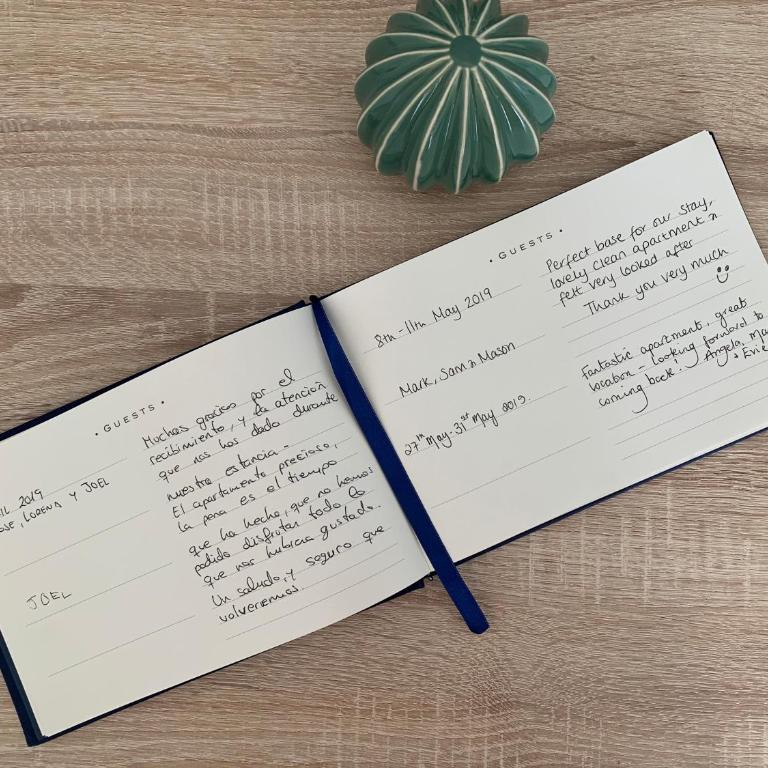 • GUESTS •
IL 2019
OSE, LORENA Y JOEL
JOEL
Muchas gracias por el
recibimiento, y la atención
que nos has dado durante
nuestra estancia -
El apartamento precioso,
la pena es el tiempo
que ha hecho, que no hemos
podido disfrutar todo lo
que nos hubiera gustado.
Un saludo, y seguro que
volveremos.
• GUESTS •
8th - 11th May 2019
Mark, Sam & Mason
27th May - 31st May 2019.
Perfect base for our stay,
lovely clean apartment &
felt very looked after
Thank you very much
Fantastic apartment, great
location - looking forward to
coming back! Angela, Ma
& Evie